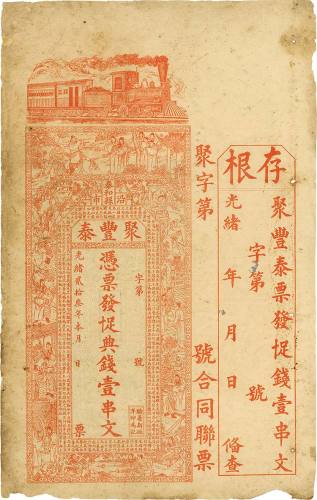 存根
聚豐泰票發足錢壹串文
字第 號
光緒 年 月 日 俻查
聚字第 號合同聯票
沿市
聚豐泰
字第 號
憑票發足典錢壹串文
光緒貳拾叁年本月 日
票